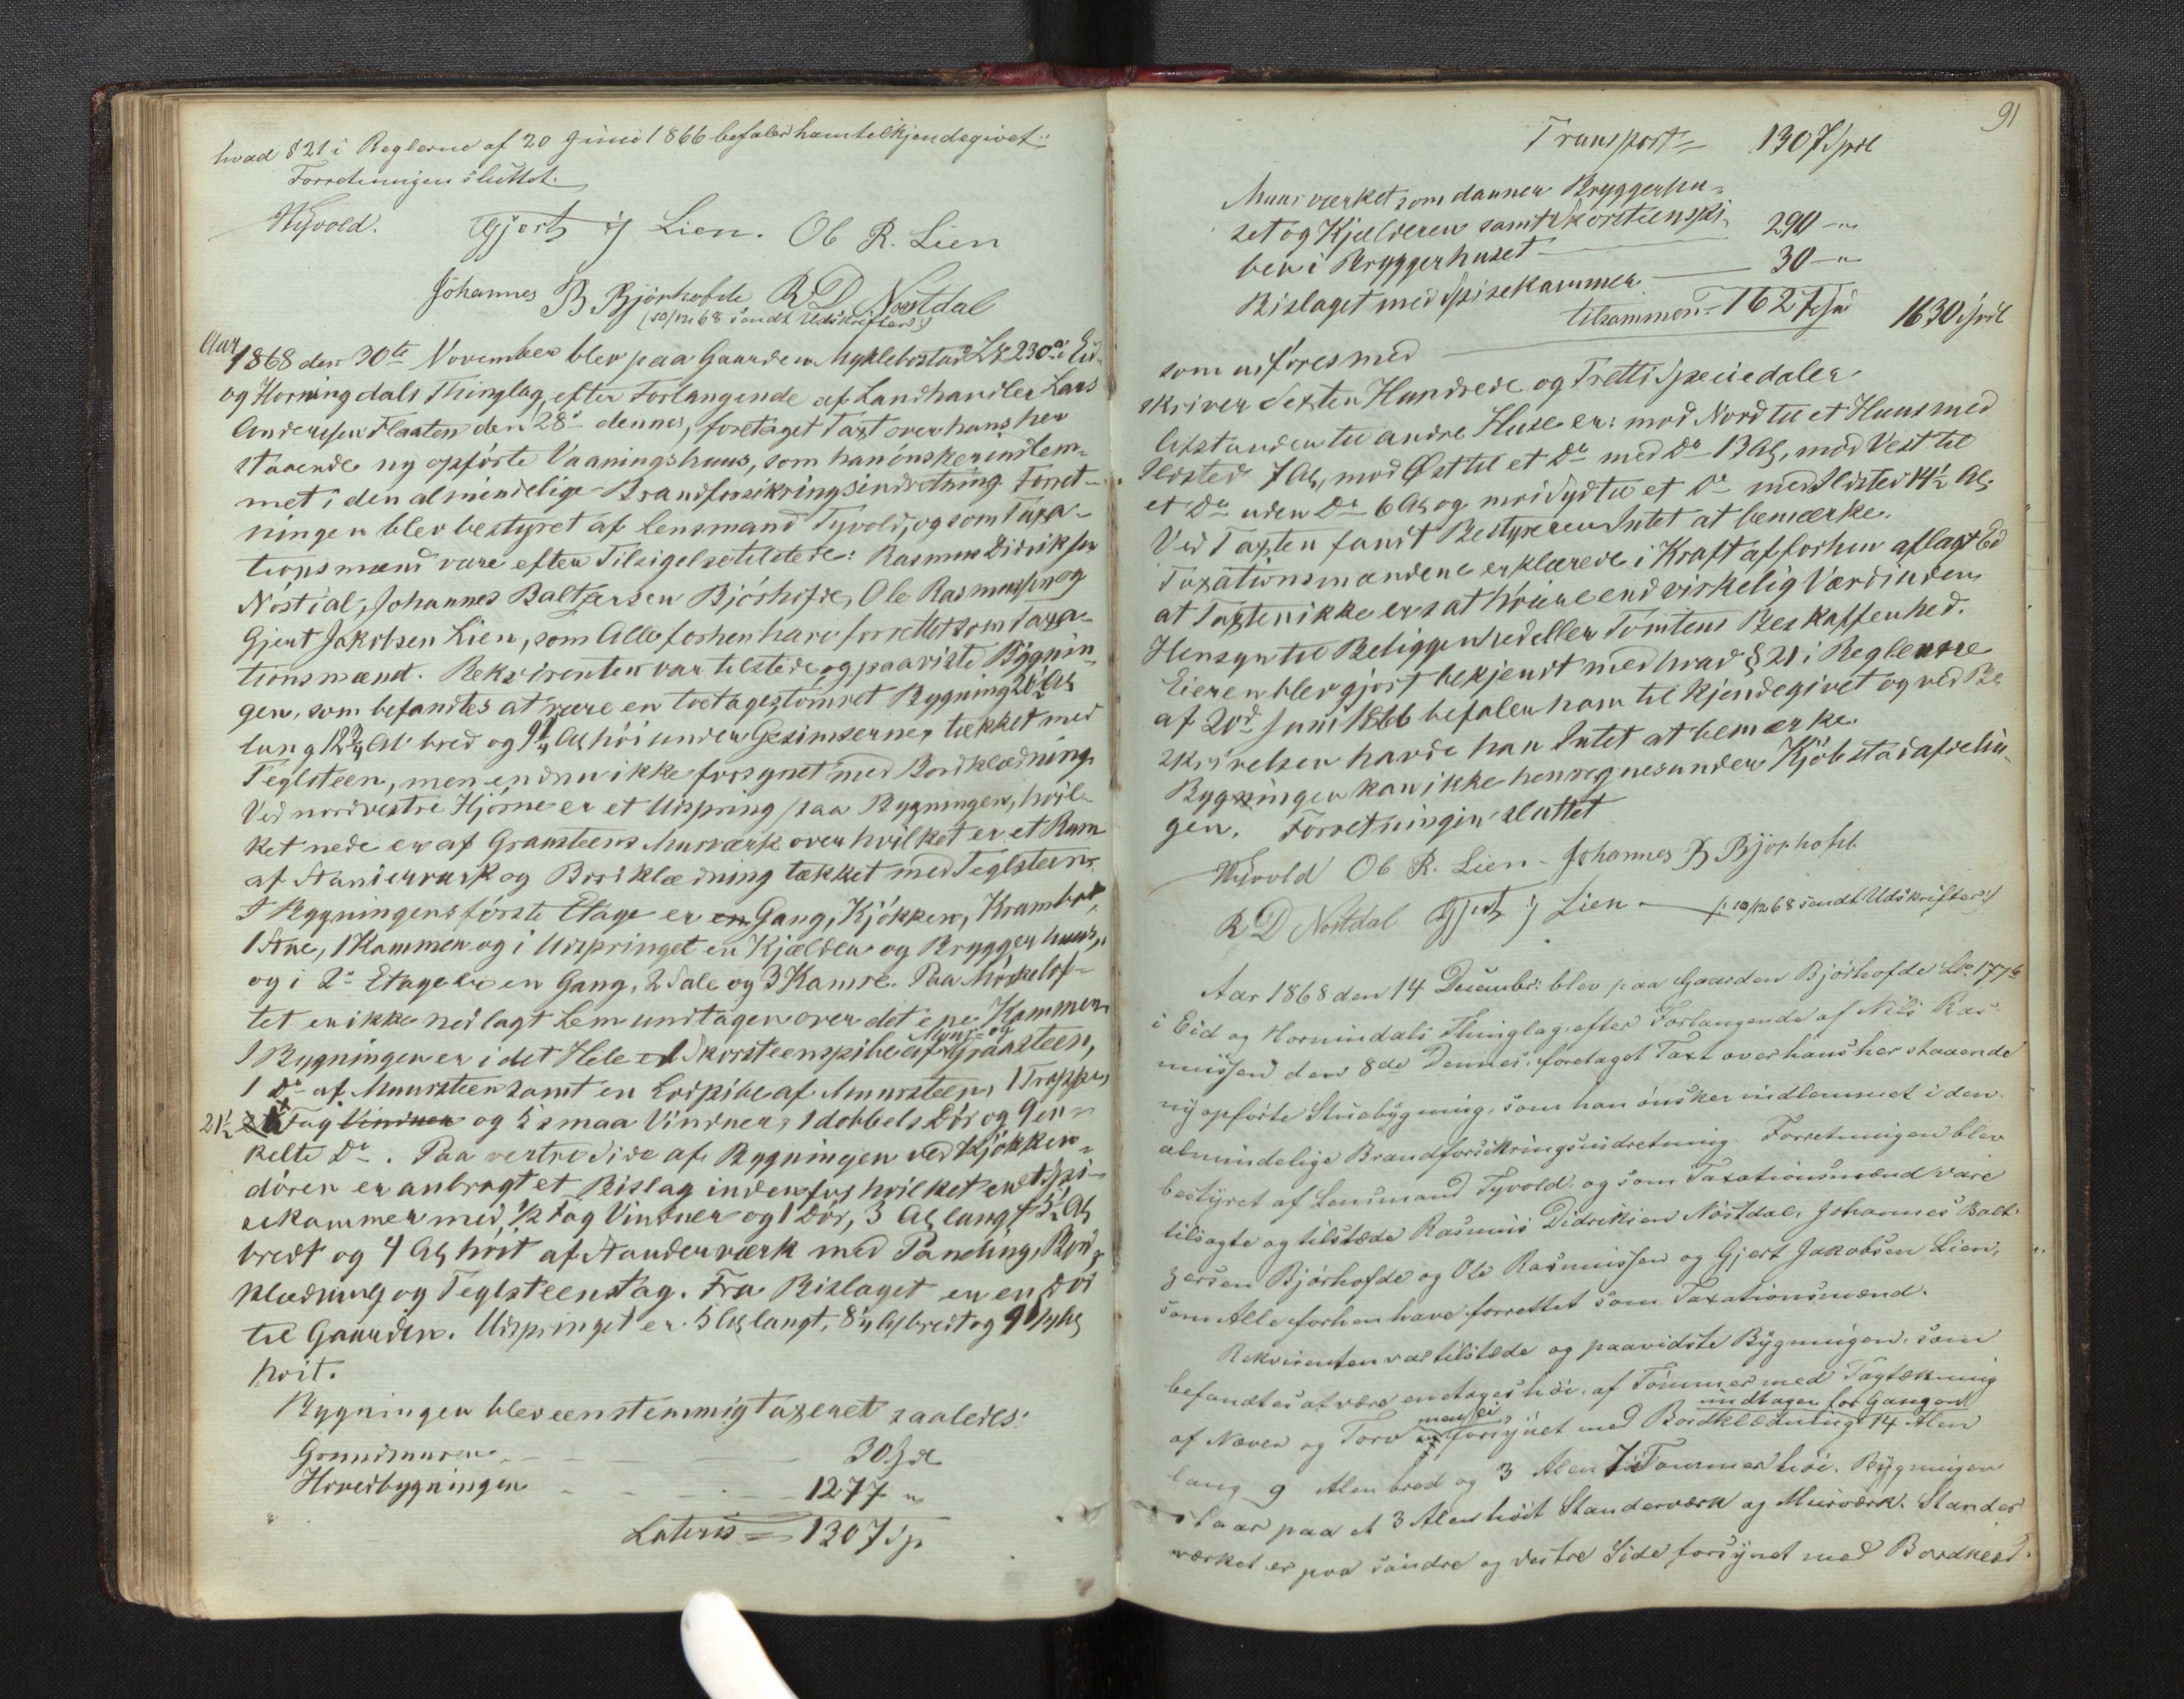 hvad §21 i Reglerne af 20 Juni 1866 befaler ham tilkjendegivet.
Forretningen sluttet.
WTyvold. Gjert J Lien. Ole R. Lien
Johannes B Bjørhofde RD Nøstdal
(10/12 68 sendt Udskrifter)
Aar
1868 den 30te November blev paa Gaarden Myklebostad L№ 230a i Eid
og Horningdals Thinglag efter Forlangende af Landhandler Lars
Andersen Flaaten den 28de dennes, foretaget Taxt over hans her
staaende ny opførte Vaaningshuus, som han ønsker indlem-
met i den almindelige Brandforsikringsindretning. Forret-
ningen blev bestyret af Lensmand Tyvold, og som Taxa-
tionsmænd vare efter Tilsigelse tilstede: Rasmus Didriksen
Nøstdal, Johannes Baltzersen Bjørhofde, Ole Rasmussen og
Gjert Jakobsen Lien, som Alle forhen have forrettet som Taxa-
tionsmænd. Rekvirenten var tilstede og paaviste Bygnin-
gen, som befandtes at være en toetages tømret Bygning 20½ Al
lang 12¾ Al bred og 9¼ Al høi under Gesimserne, tækket med
Teglsteen, men endnu ikke forsynet med Bordklædning.
Ved nordvestre Hjørne er et Udspring paa Bygningen, hvil-
ket nede er af Graasteens Muurværk over hvilket er et Rum
af Standerværk og Bordklædning tækket med Teglsteen.
I Bygningens første Etage er en Gang, Kjøkken, Krambod,
1 Stue, 1 Kammer og i Udspringet en Kjælder og Bryggerhuus,
og i 2den Etage er en Gang, 2 Sale og 3 Kamre. Paa Mørkelof-
tet er ikke nedlagt Lem undtagen over det ene Kammer
I Bygningen er i det Hele 1 Skorsteenspibe af Muur- og Graasteen,
1 Do af Muursteen samt en Lodpibe af Muursteen, 1 Trappe,
21½ Fag Vinduer og 5 smaa Vinduer, 1 dobbelt Dør og 9 en-
kelte Do. Paa vestre Side af Bygningen ved Kjøkken-
døren er anbragt et Bislag indenfor hvilket er et Spi-
sekammer med ½ Fag Vinduer og 1 Dør, 3 Al langt 5½ Al
bredt og 4 Al høit af Standerværk med Panding, Bord-
klædning og Teglsteenstag. Fra Bislaget er en Dør
til Gaarden. Udspringet er 5 Al langt, 8¼ Al bredt og 9¼ Al
høit.
Bygningen blev eenstemmig taxeret saaledes:
Grundmuren 30 Spd
Hovedbygningen 1277 "
Lateris = 1307 Sp
91
Transport = 1307 Spd
Muurværket som danner Bryggerhu-
set og Kjælderen samt Skorsteenspi-
ben i Bryggerhuset 290 "
Bislaget med Spisekammer 30 "
tilsammen = 1627 Spd 1630 Spd
som udføres med
skriver Sexten Hundrede og Tretti Speciedaler
Afstanden til andre Huse er: mod Nord til et Huus med
Ildsted 7 Al, mod Øst til et Do med Do 13 Al, mod Vest til
et Do uden Do 6 Al og mod Syd til et Do med Ildsted 14½ Al.
Ved Taxten fandt Bestyreren Intet at bemærke.
Taxationsmændene erklærede i Kraft af forhen aflagt Ed
at Taxten ikke er sat høiere end virkelig Værdi uden
Hensyn til Beliggenhed eller Tomtens Beskaffenhed.
Eieren blev gjort bekjendt med hvad § 21 i Reglerne
af 20de Juni 1866 befaler ham tilkjendegivet og ved Be-
skrivelsen havde han Intet at bemærke.
Bygningen kan ikke henregnes under Kjøbstadafdelin-
gen. Forretningen sluttet
WTyvold Ole R. Lien - Johannes B Bjørhofd.
R D Nøstdal Gjert J Lien - (: 10/12 68 sendt Udskrifter :)
Aar 1868 den 14 December blev paa Gaarden Bjørhofde L№ 177b
i Eid og Hornindals Thinglag, efter Forlangende af Nils Ras-
mussen den 8de Dennes, foretaget Taxt over hans her staaende
ny opførte Stuebygning, som han ønsker indlemmet i den
almindelige Brandforsikringsindretning. Forretningen blev
bestyret af Lensmand Tyvold, og som Taxationsmænd vare
tilsagte og tilstæde Rasmus Didriksen Nøstdal, Johannes Balt-
zersen Bjørhofde og Ole Rasmussen og Gjert Jakobsen Lien,
som Alle forhen have forrettet som Taxationsmænd.
Rekvirenten var tilstæde og paavidste Bygningen, som
befandtes at være en etages høi, af Tømmer med Tagtækning
af Næver og Torv men ei forsynet med Bordklædning undtagen for Gangen 14 Alen
lang 9 Alen bred og 3 Alen 7 Tommer høi. Bygningen
staar paa et 3 Alen høit Standerværk og Muurværk. Stander-
værket er paa søndre og vestre Side forsynet med Bordklæd-